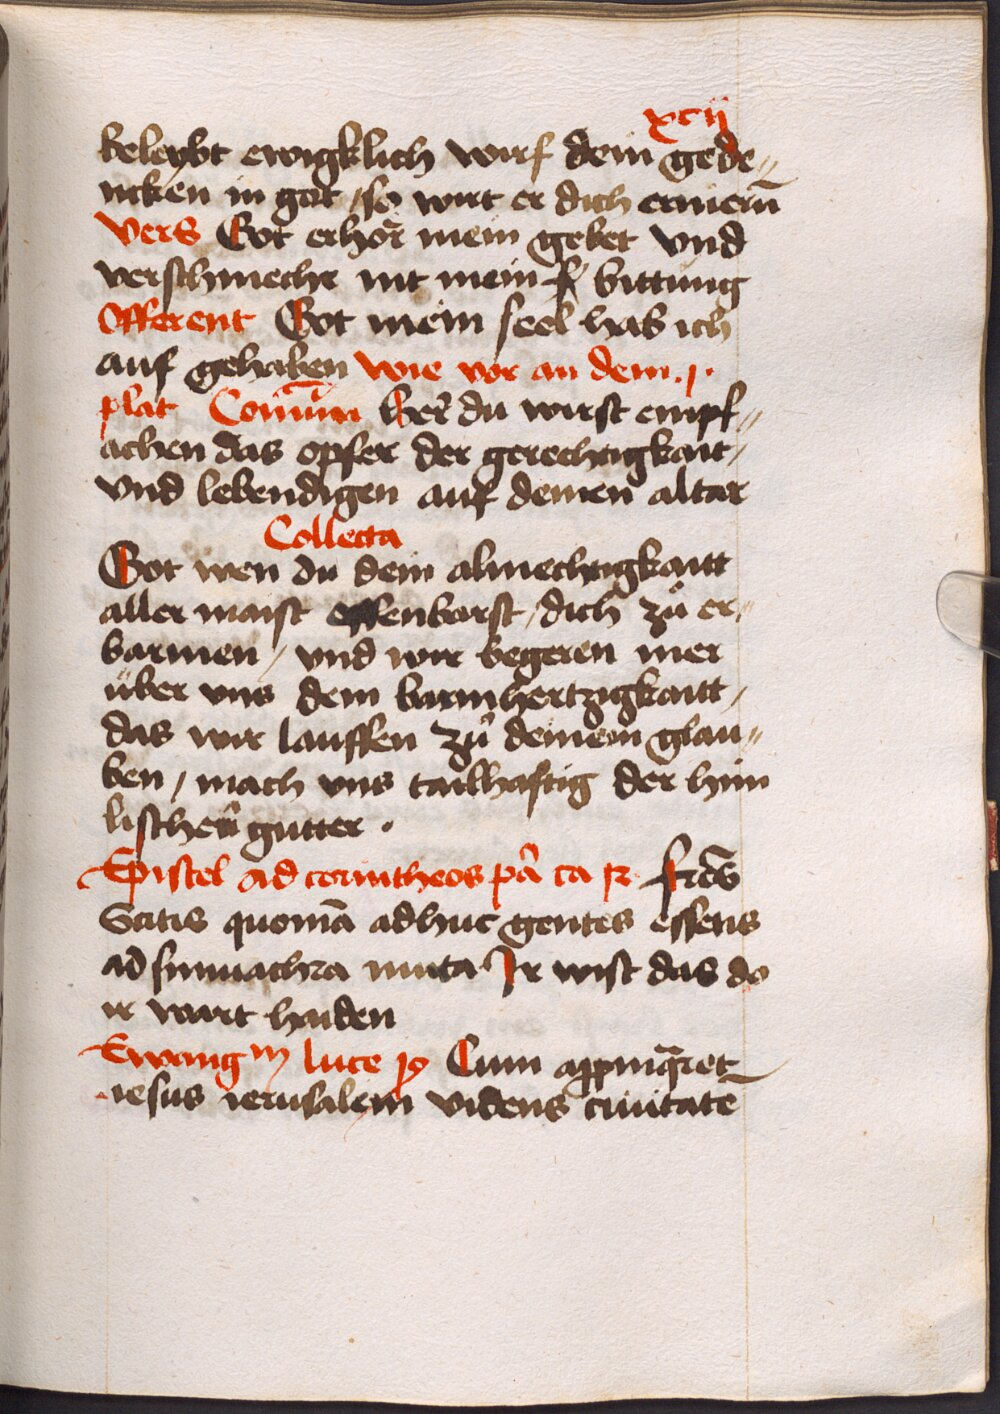 xcij
beleybt ewigklich wirf dein gede〃
ncken in got / so wirt er dich erniern̄
Vers Got erhör mein gebet vnd
verschmeche nit mein bittung
Offerent Got mein seel hab ich
auf gehaben wie vor an dem .j.
plat Com̄un her du wirst empf〃
achen das opfer der gerechtigkait /
vnd lebendigen auf deinen altar
Collecta
Got wen du dein almechtigkaitt
aller maist offenbarst / dich zů er〃
barmen / vnd wir begeren mer
über vns dein barmhertzigkaitt /
das wir lauffen zů deinem glau〃
ben / mach vns tailhaftig der him
lischen gutter .
Epistel ad corintheos pā ca 12 frēs
Scitis quoniā adhuc gentes essetis
ad simulachra muta Ir wist das do
ir wart haiden
Ewang m luce Cum appinq̄ret
iesus ierusalem videns ciuitatē